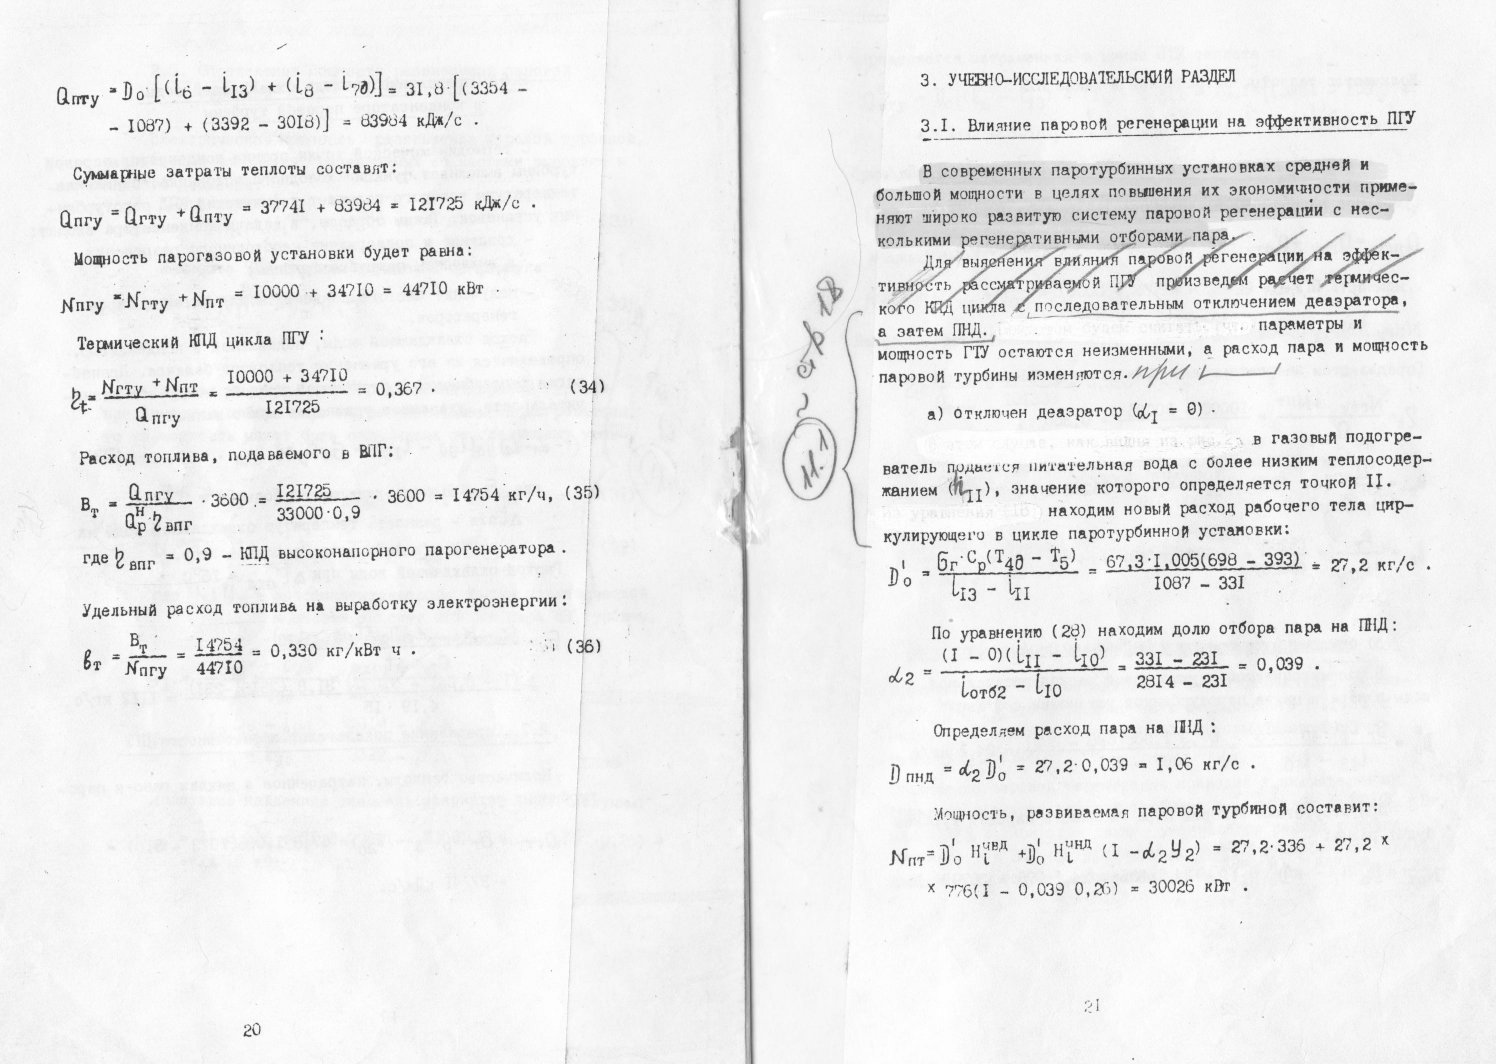 Qпту = D₀ [(i₆ − i₁₃) + (i₈ − i₇д)] = 31,8·[(3354 −
− 1087) + (3392 − 3018)] = 83984 кДж/с .
Суммарные затраты теплоты составят:
Qпгу = Qгту + Qпту = 37741 + 83984 = 121725 кДж/с .
Мощность парогазовой установки будет равна:
Nпгу = Nгту + Nпт = 10000 + 34710 = 44710 кВт .
Термический КПД цикла ПГУ :
ηt = (Nгту + Nпт) / Qпгу = (10000 + 34710) / 121725 = 0,367 . (34)
Расход топлива, подаваемого в ВПГ:
Bт = Qпгу / (Qрᴴ·ηвпг) · 3600 = 121725 / (33000·0,9) · 3600 = 14754 кг/ч, (35)
где ηвпг = 0,9 − КПД высоконапорного парогенератора .
Удельный расход топлива на выработку электроэнергии:
bт = Bт / Nпгу = 14754 / 44710 = 0,330 кг/кВт ч . (36)
20
3. УЧЕБНО-ИССЛЕДОВАТЕЛЬСКИЙ РАЗДЕЛ
3.1. Влияние паровой регенерации на эффективность ПГУ
В современных паротурбинных установках средней и
большой мощности в целях повышения их экономичности приме-
няют широко развитую систему паровой регенерации с нес-
колькими регенеративными отборами пара.
Для выяснения влияния паровой регенерации на эффек-
тивность рассматриваемой ПГУ произведем расчет термичес-
кого КПД цикла с последовательным отключением деаэратора,
а затем ПНД. параметры и
мощность ГТУ остаются неизменными, а расход пара и мощность
паровой турбины изменяются. при
~ стр 18
11.1
а) Отключен деаэратор (α₁ = 0) .
в газовый подогре-
ватель подается питательная вода с более низким теплосодер-
жанием (h₁₁), значение которого определяется точкой 11.
находим новый расход рабочего тела цир-
кулирующего в цикле паротурбинной установки:
D₀' = Gг·Cр(T₄д − T₅) / (i₁₃ − i₁₁) = 67,3·1,005(698 − 393) / (1087 − 331) = 27,2 кг/с .
По уравнению (28) находим долю отбора пара на ПНД:
α₂ = (1 − 0)(i₁₁ − i₁₀) / (iотб2 − i₁₀) = (331 − 231) / (2814 − 231) = 0,039 .
Определяем расход пара на ПНД :
Dпнд = α₂ D₀' = 27,2·0,039 = 1,06 кг/с .
Мощность, развиваемая паровой турбиной составит:
Nпт = D₀' Hᵢ чвд + D₀' Hᵢ чнд (1 − α₂ y₂) = 27,2·336 + 27,2 ×
× 776(1 − 0,039 0,26) = 30026 кВт .
21